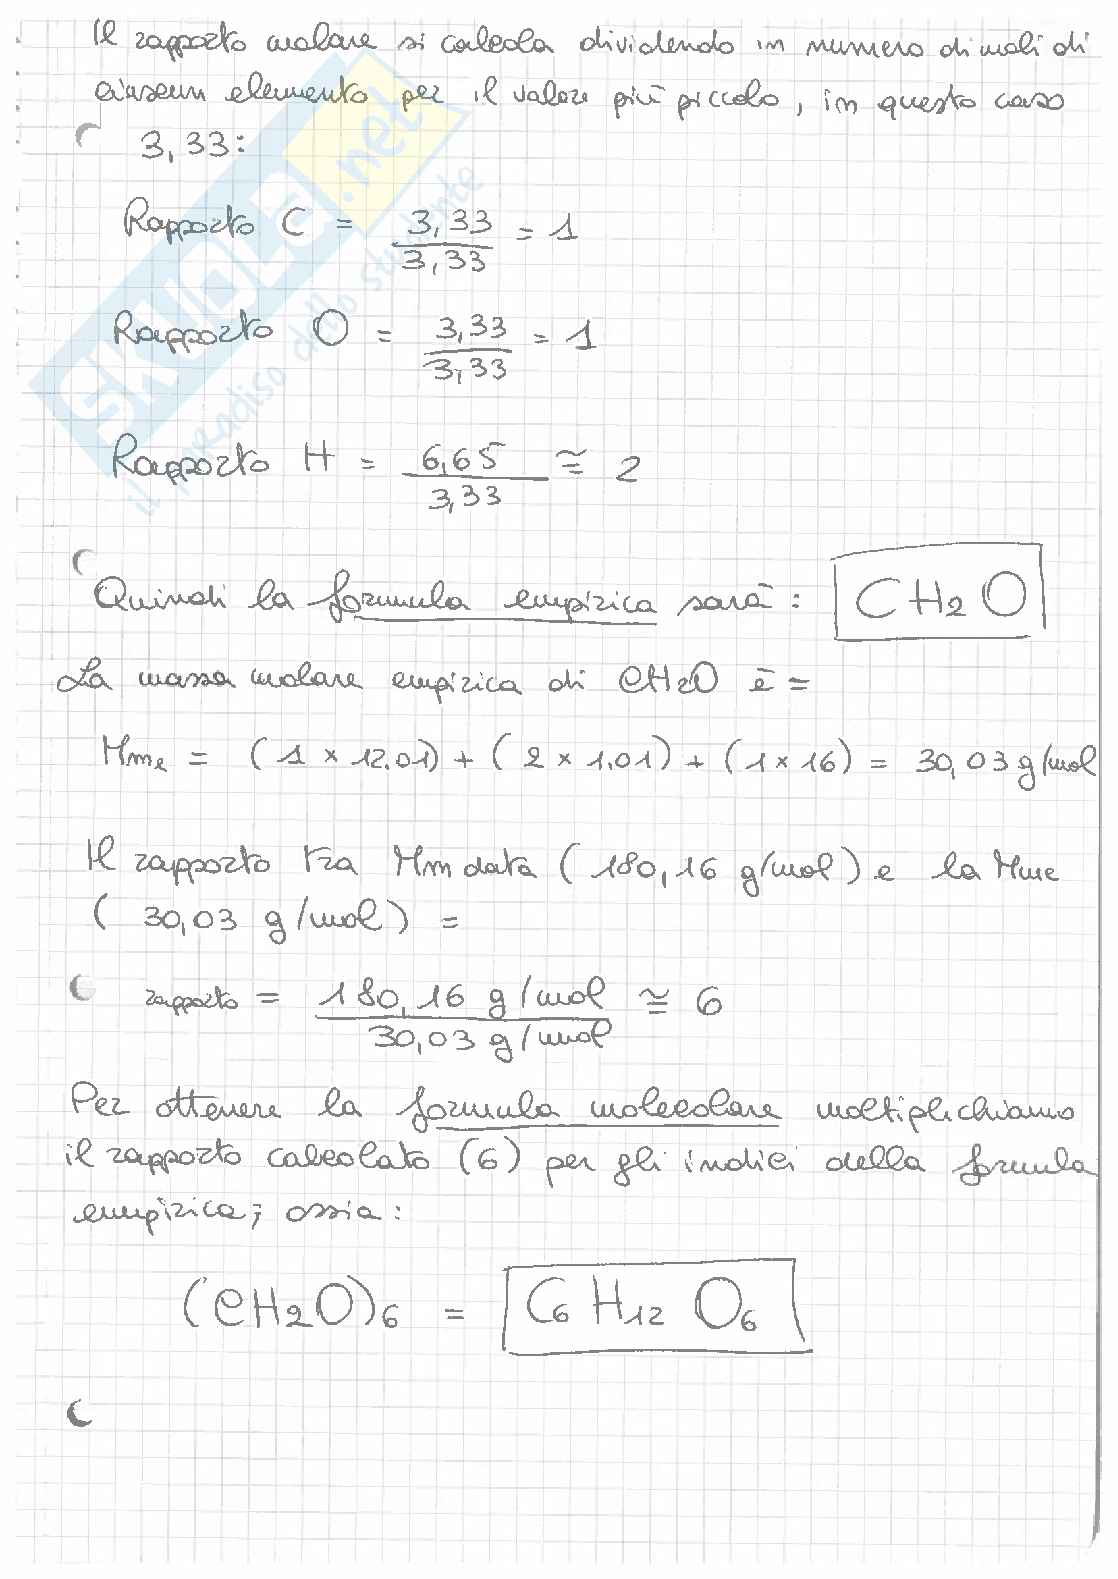 Il rapporto molare si calcola dividendo in numero di moli di
ciascun elemento per il valore più piccolo, in questo caso
3,33:
Rapporto C = 3,33 / 3,33 = 1
Rapporto O = 3,33 / 3,33 = 1
Rapporto H = 6,65 / 3,33 ≅ 2
Quindi la formula empirica sarà: CH2O
La massa molare empirica di CH2O è =
Mme = (1 × 12,01) + (2 × 1,01) + (1 × 16) = 30,03 g/mol
Il rapporto tra Mm data (180,16 g/mol) e la Mme
(30,03 g/mol) =
rapporto = 180,16 g/mol / 30,03 g/mol ≅ 6
Per ottenere la formula molecolare moltiplichiamo
il rapporto calcolato (6) per gli indici della formula
empirica; ossia:
(CH2O)6 = C6H12O6
SKUOLA.net
il paradiso dello studente